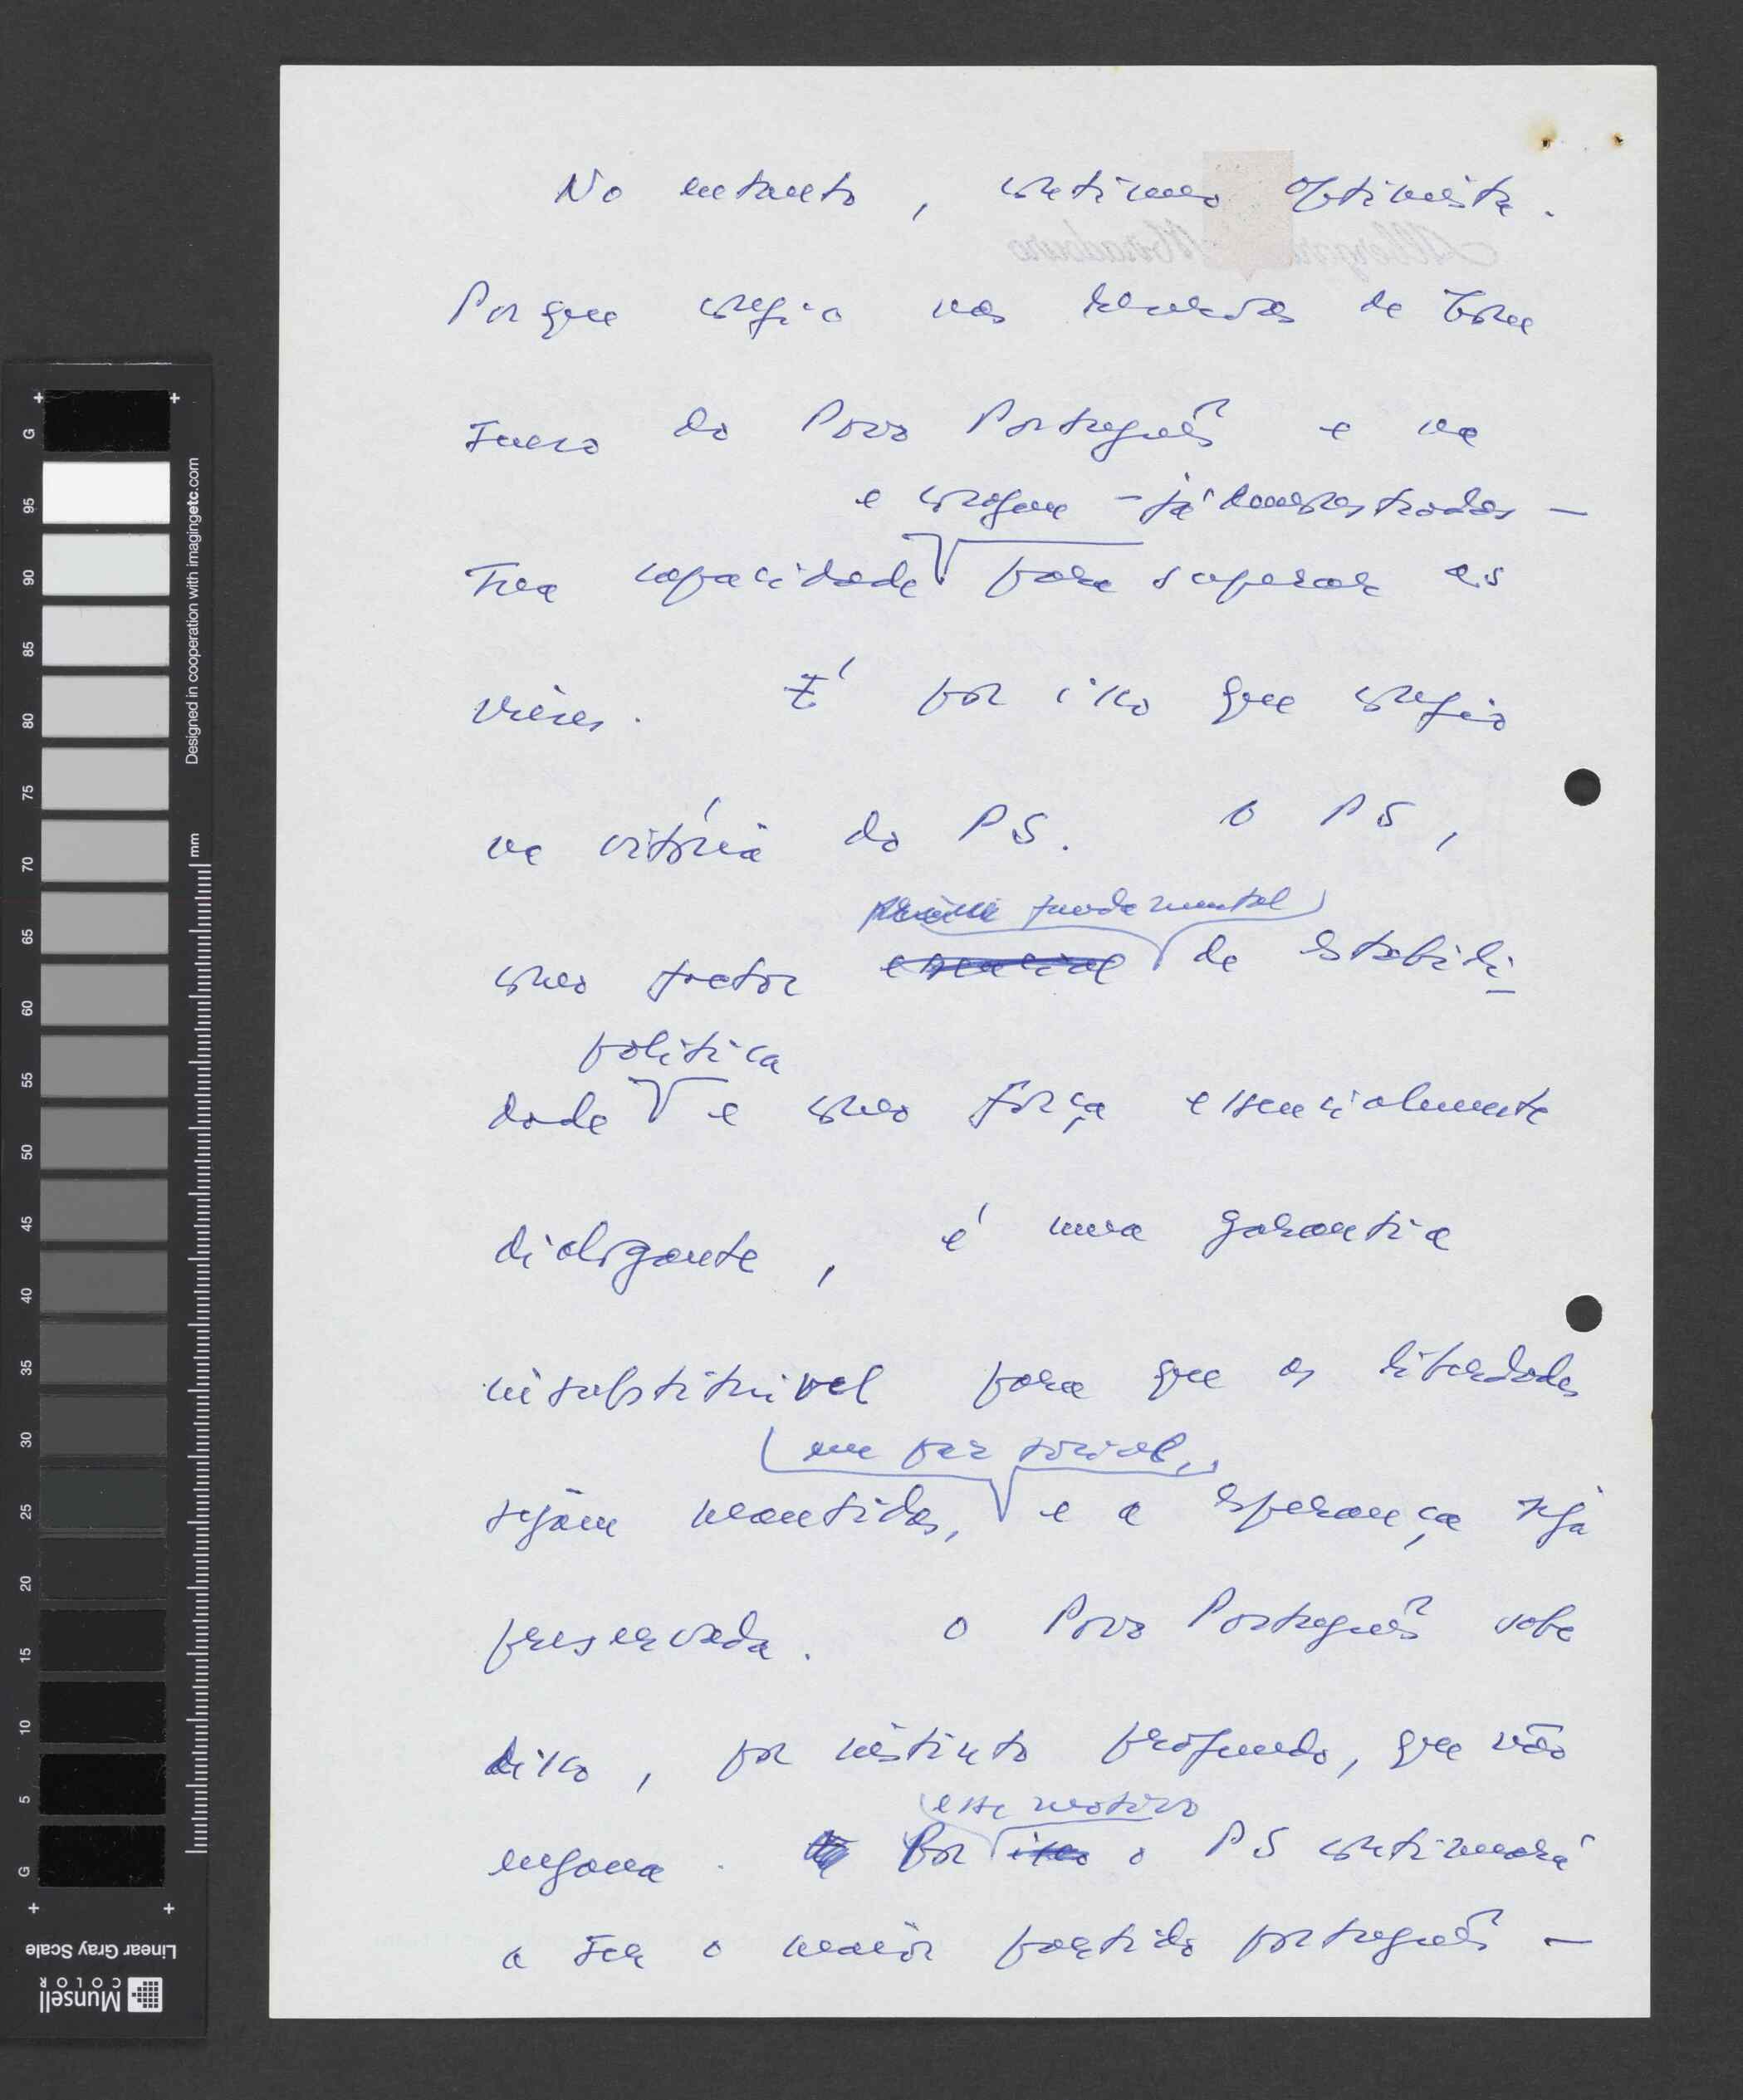 No entanto, continuo optimista.
Porque confio nas reservas de bom
senso do Povo Português e na
e coragem - já demonstradas -
sua capacidade para superar as
crises. É por isso que confio
na vitória do PS. O PS,
fundamental
como factor essencial de estabili
política
dade e como força essencialmente
dialogante, é uma garantia
insubstituivel para que as liberdades
em paz social,
sejam mantidas, e a esperança seja
preservada. O Povo Português sabe
disso, por instinto profundo, que não
engana.
esse motivo
Por isso o PS continuará
a ser o maior partido português -
Albergaria Miradouro
Designed in cooperation with imagingetc.com
mm
G 95 90 85 80 75 70 65 60 55 50 45 40 35 30 25 20 15 10 5 G
Linear Gray Scale
Munsell
COLOR